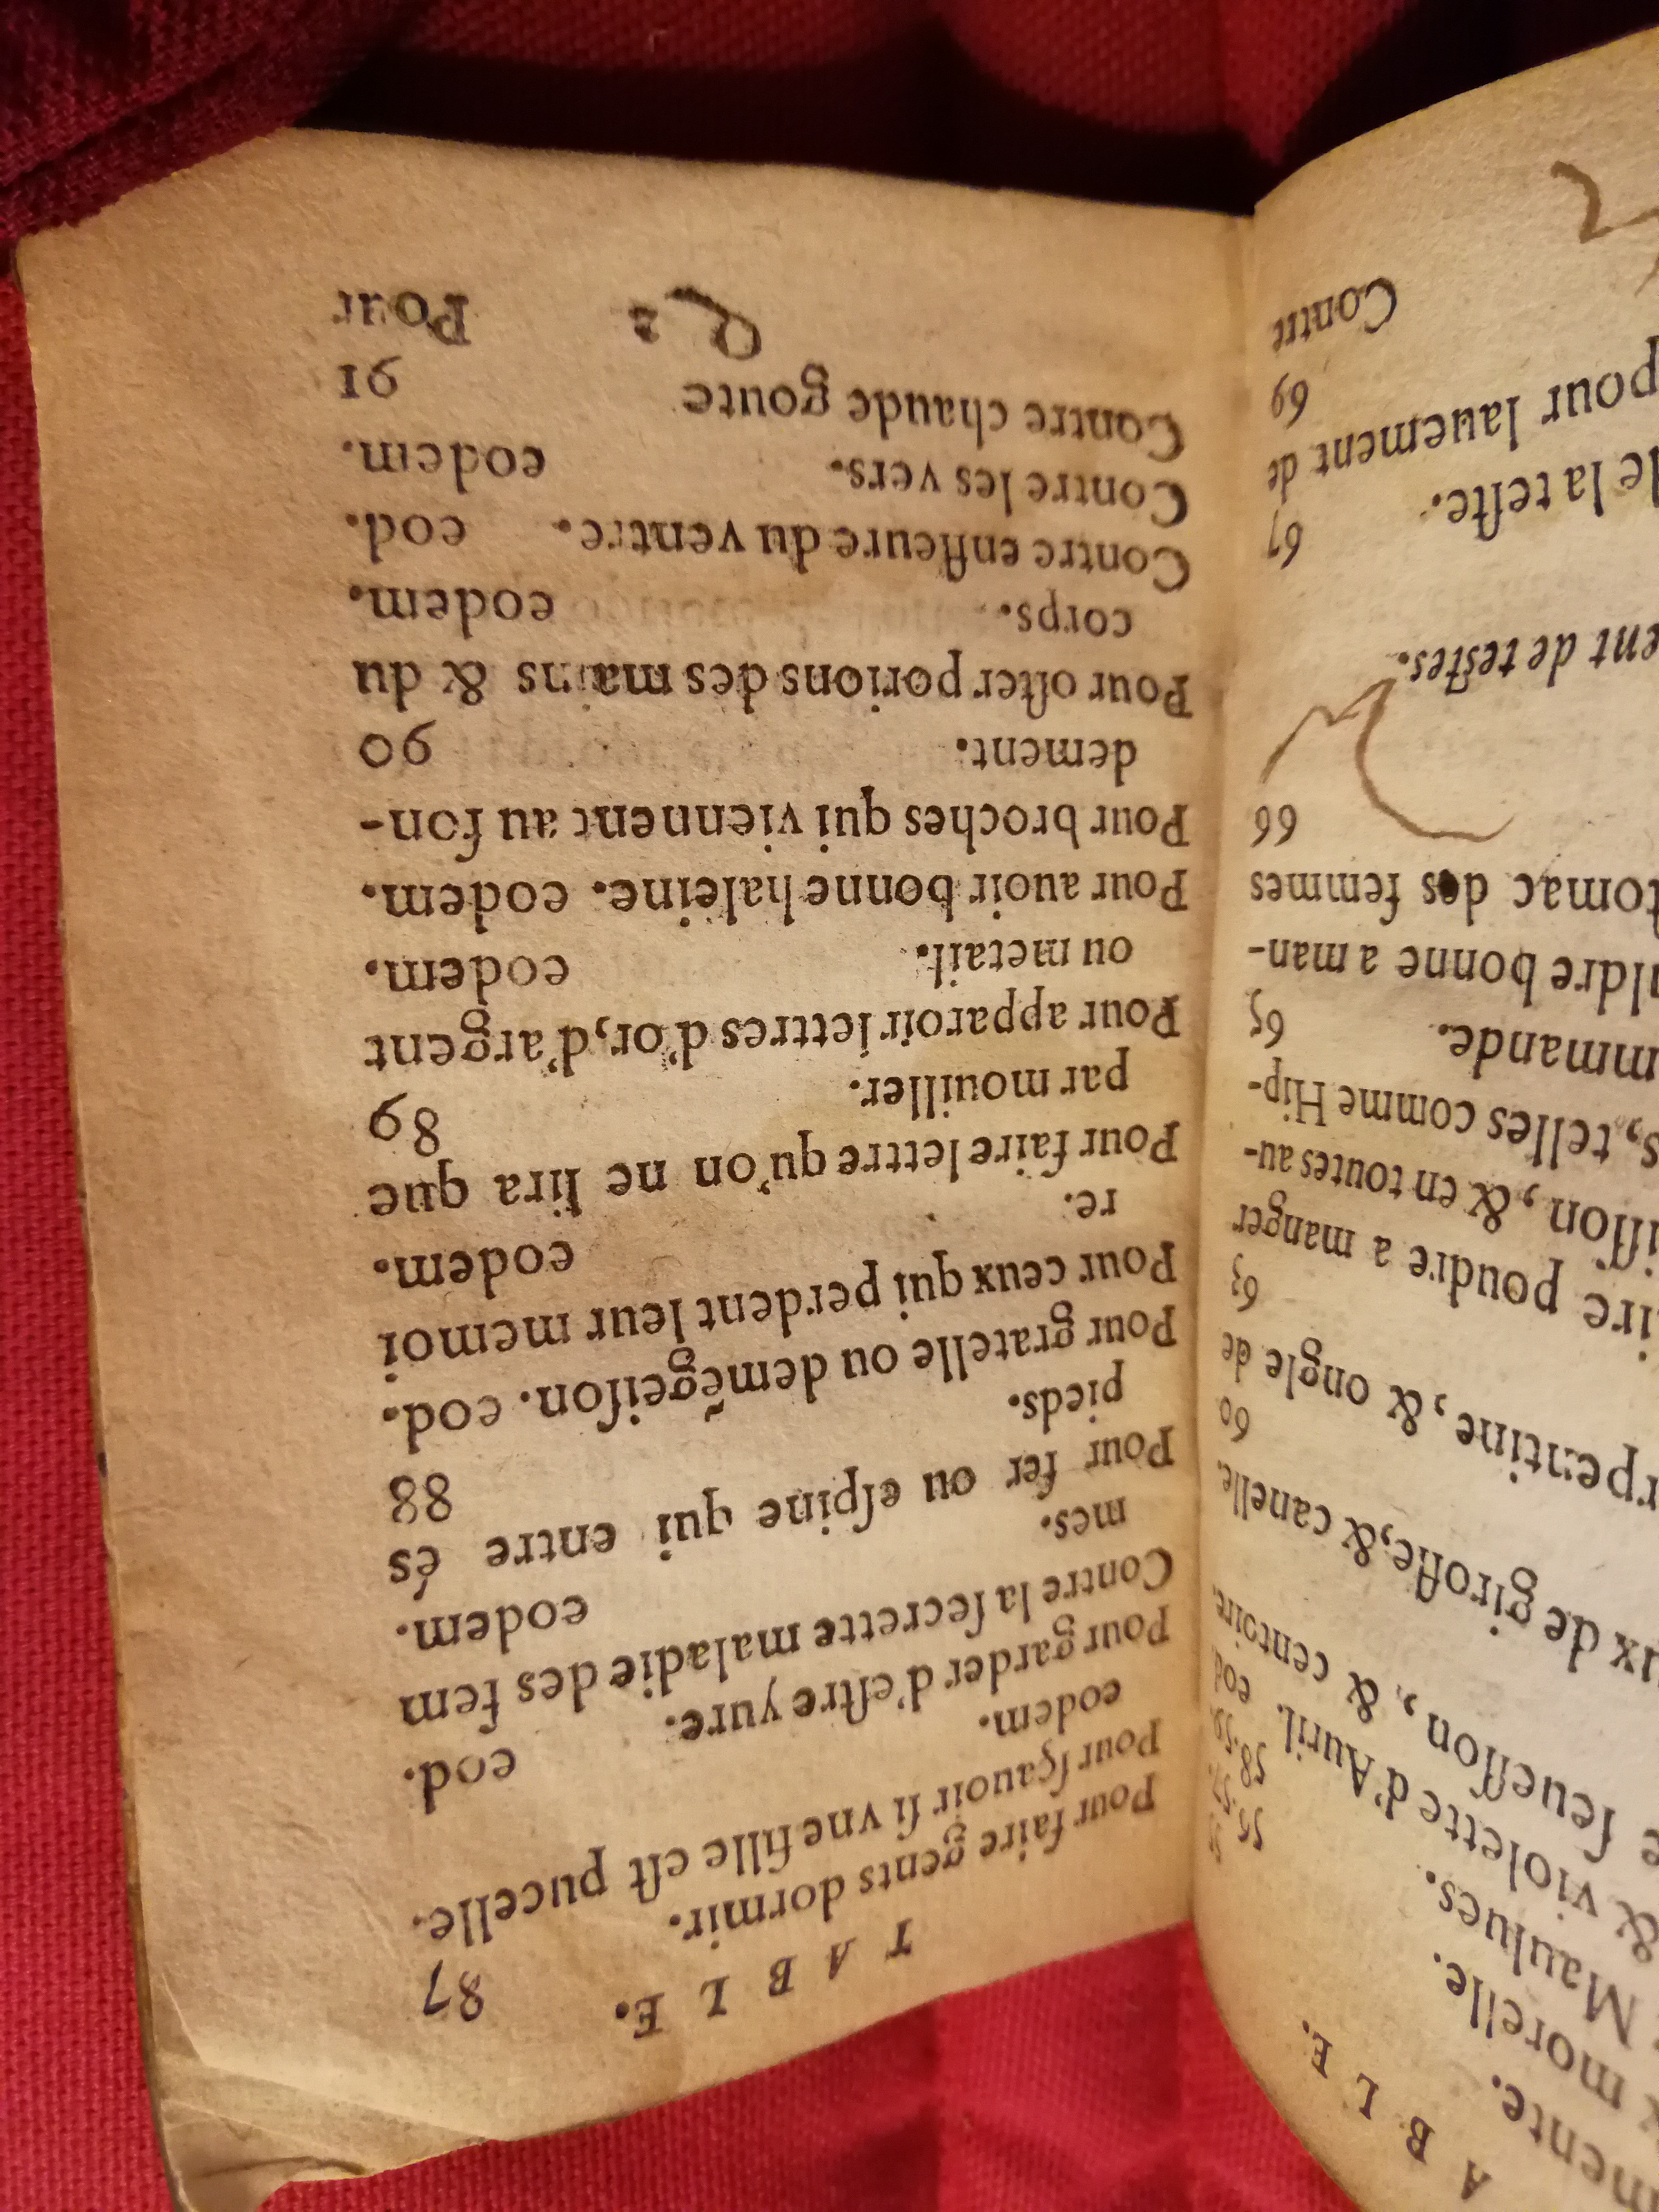 A B L E.
mente.
morelle. 55
Maulues. 58
& violette d'Auril. eod
ſeueſſon, & centoire
de girofle, & canelle.
60
& ongle de
63
poudre a manger
& en toutes au-
telles comme Hip-
65
bonne a man-
des femmes
66
de teſtes.
67
la teſte.
pour lauement de
69
Contre
T A B L E.
Pour faire gents dormir. 87
Pour ſçauoir ſi vne fille eſt pucelle.
eodem.
Pour garder d'eſtre yure. eod.
Contre la ſecrette maladie des fem
mes. eodem.
Pour fer ou eſpine qui entre és
pieds. 88
Pour gratelle ou demẽgeiſon. eod.
Pour ceux qui perdent leur memoi
re. eodem.
Pour faire lettre qu'on ne lira que
par mouiller. 89
Pour apparoir lettres d'or, d'argent
ou metail. eodem.
Pour auoir bonne haleine. eodem.
Pour broches qui viennent au fon-
dement. 90
Pour oſter porions des mains & du
corps. eodem.
Contre enfleure du ventre. eod.
Contre les vers. eodem.
Contre chaude goute 91
Q 2 Pour